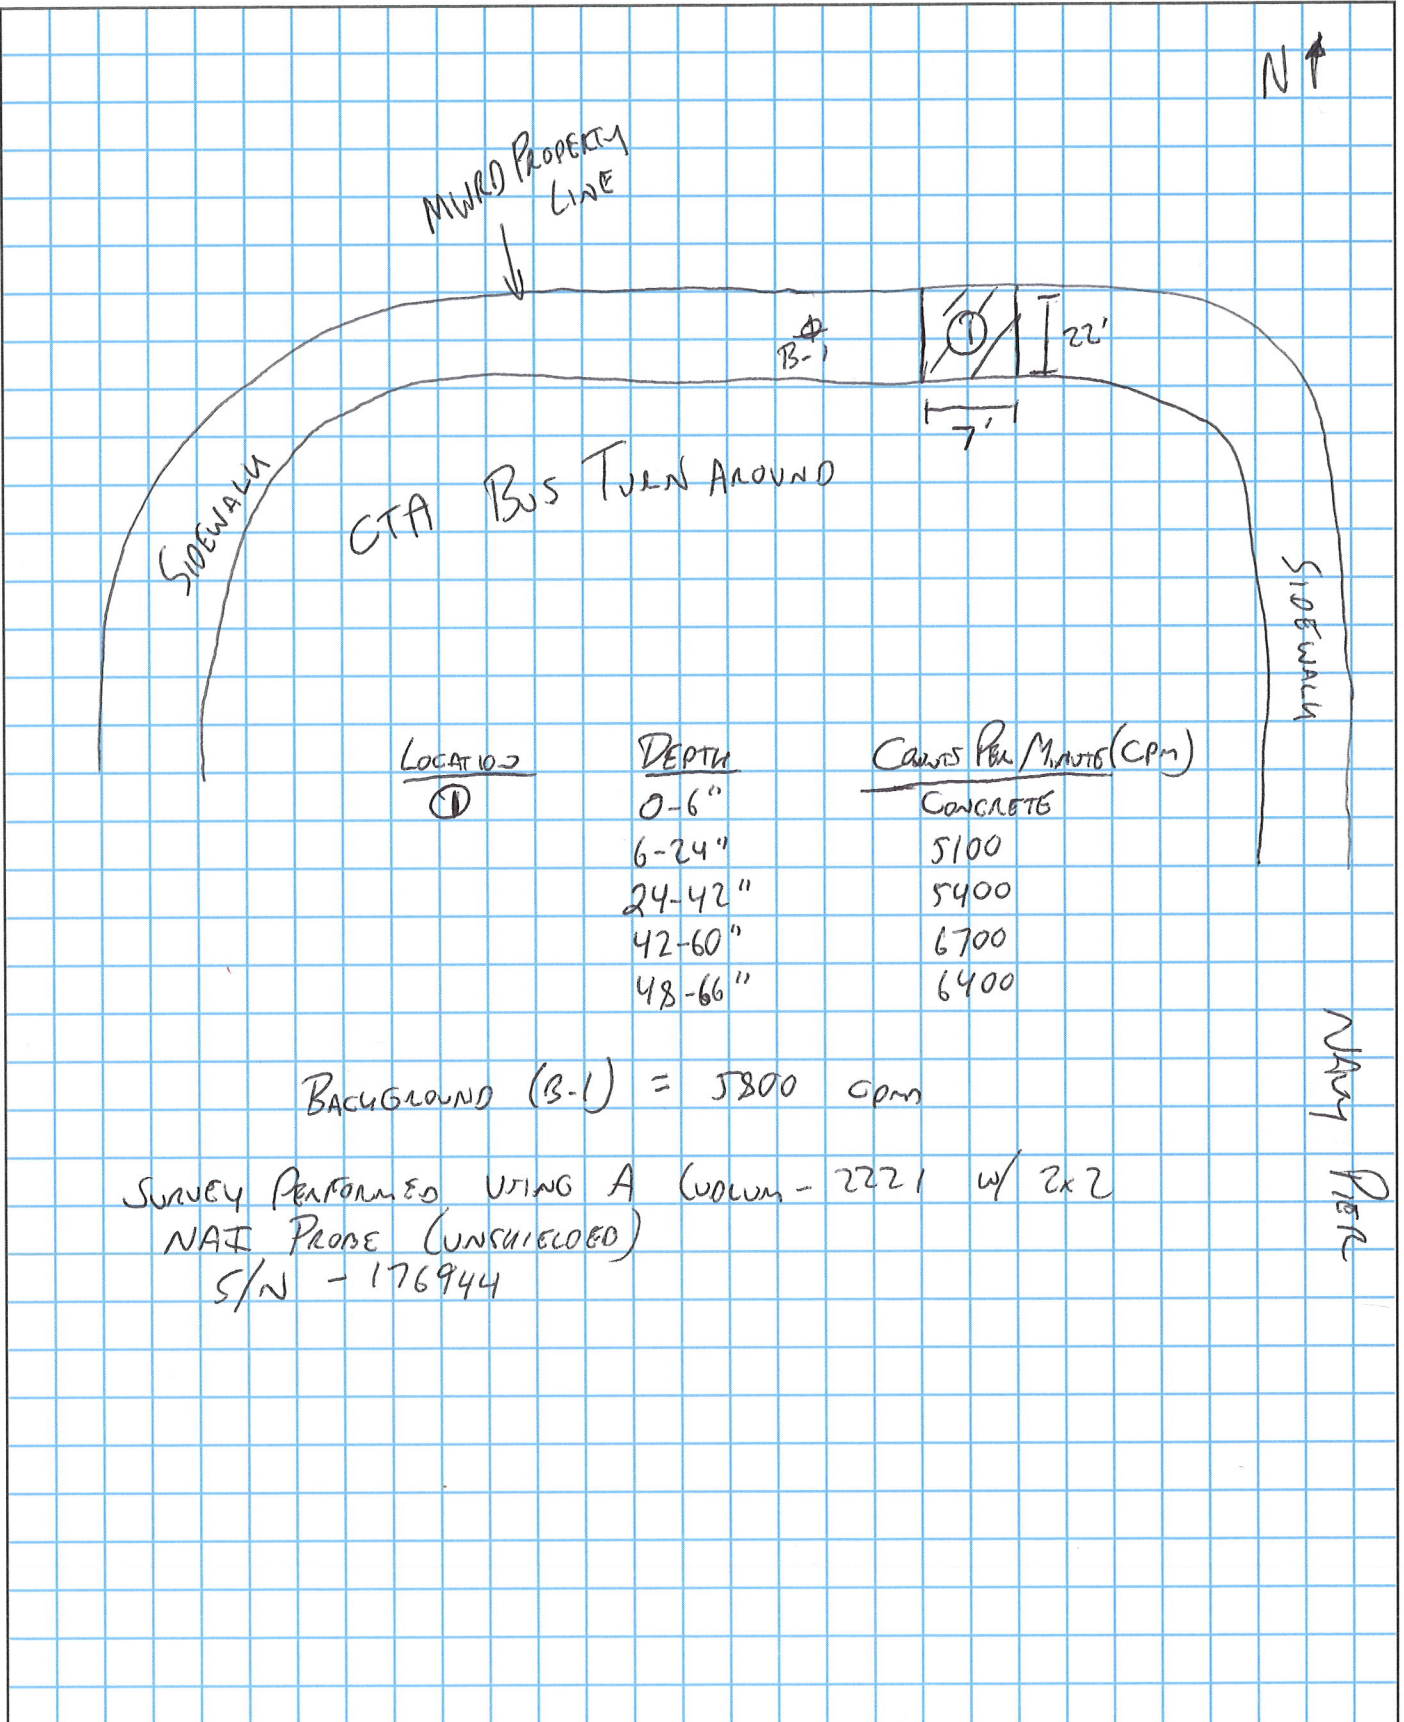 N
MWRD PROPERTY
LINE
B-1
1
22'
7'
CTA BUS TURN AROUND
SIDEWALK
SIDEWALK
LOCATION DEPTH COUNTS PER MINUTE (CPM)
1 0-6" CONCRETE
6-24" 5100
24-42" 5400
42-60" 6700
48-66" 6400
NAVY PIER
BACKGROUND (B-1) = 5800 cpm
SURVEY PERFORMED USING A LUDLUM - 2221 w/ 2x2
NAI PROBE (UNSHIELDED)
S/N - 176944